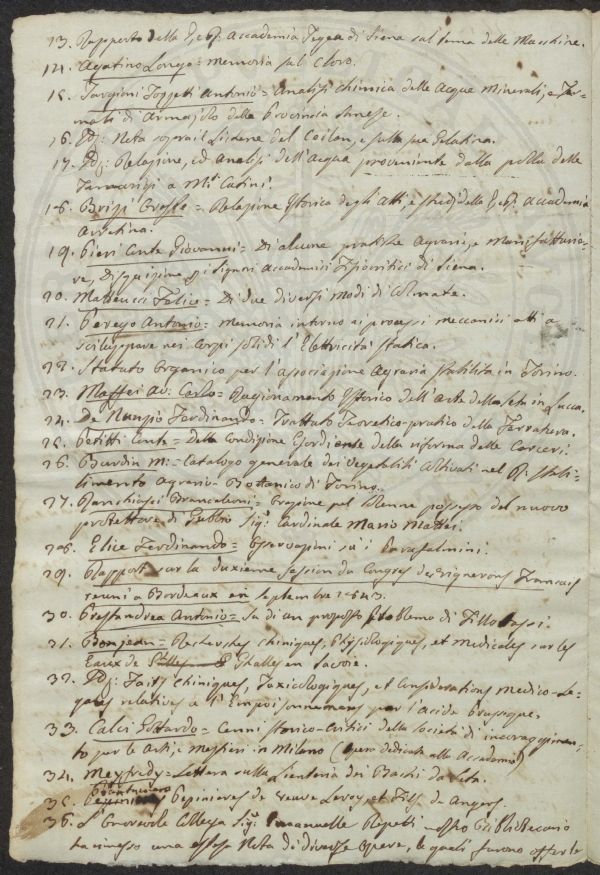 13. Rapporto della Accademia Tegea di Siena sul tema delle Macchine.
14. Agatino Longo = Memoria sul Cloro.
15. Targioni Tozzetti Antonio = Analisi chimica delle Acque Minerali, e Ter-
mali di Armajolo della Provincia Sanese.
16. Nota sopra il del e sulla sua Gelatina.
17. Relazione, ed Analisi dell'Acqua proveniente dalla polla delle
Tamerisi a M.t Catini.
18. Brizi Oreste = Relazione Istorica degli Atti, e studj della Accademia
Aretina.
19. Pieri Conte Giovanni = Di alcune pratiche Agrarie, e Manifatturie-
re, Disquisizione ai Signori Accademici Fisiocritici di Siena.
20. Matteucci Felice = Di due diversi modi di Colmate.
21. Perego Antonio = Memoria intorno ai processi meccanici atti a
sviluppare nei Corpi solidi l'Elettricità statica.
22. Statuto Organico per l'associazione Agraria stabilita in Torino.
23. Maffei Av: Carlo = Ragionamento Istorico dell'Arte della Seta in Lucca.
24. De Nunzio Ferdinando = Trattato Teoretico-pratico della
25. Petitti Conte = Della Condizione della riforma delle Carceri.
26. Burdin M: = Catalogo generale dei Vegetabili Coltivati nel R. Stabi-
limento Agrario-Botanico di Torino.
27. Ranghiasci Brancaleoni = Orazione pel solenne possesso del nuovo
protettore di Gubbio Sig.r Cardinale Mario Mattei.
28. Elice Ferdinando = Osservazioni su i Parafulmini.
29. Rapport sur la duxieme session du Congres des Vignerons Francais
reuni a Bordeaux en septembre 1843.
30. Antonio = Su di un proposto Problema di
31. Bonjean = Recherches chimiques, Physiologiques, et medicales sur les
Eaux de en Savoie.
32. Faits chimiques, Toxicologiques, et Considerations Medico-Le-
gales relatives a l'Empoisonnement par l'acide Prussique.
33. Calvi Gottardo = Cenni storico-critici della società di incoraggiamen-
to per le Arti, e Mestieri in Milano (opera dedicata alle Accademie)
34. = Lettera sulla Lienteria dei Bachi da Seta.
35. Pepinieres de Leroy, et Fils, de Angers.
36. L'Onorevole Collega Sig.r Emanuelle Repetti nostro Bibliotecario
trasmesso una estesa Nota di diverse Opere, le quali furono offerte